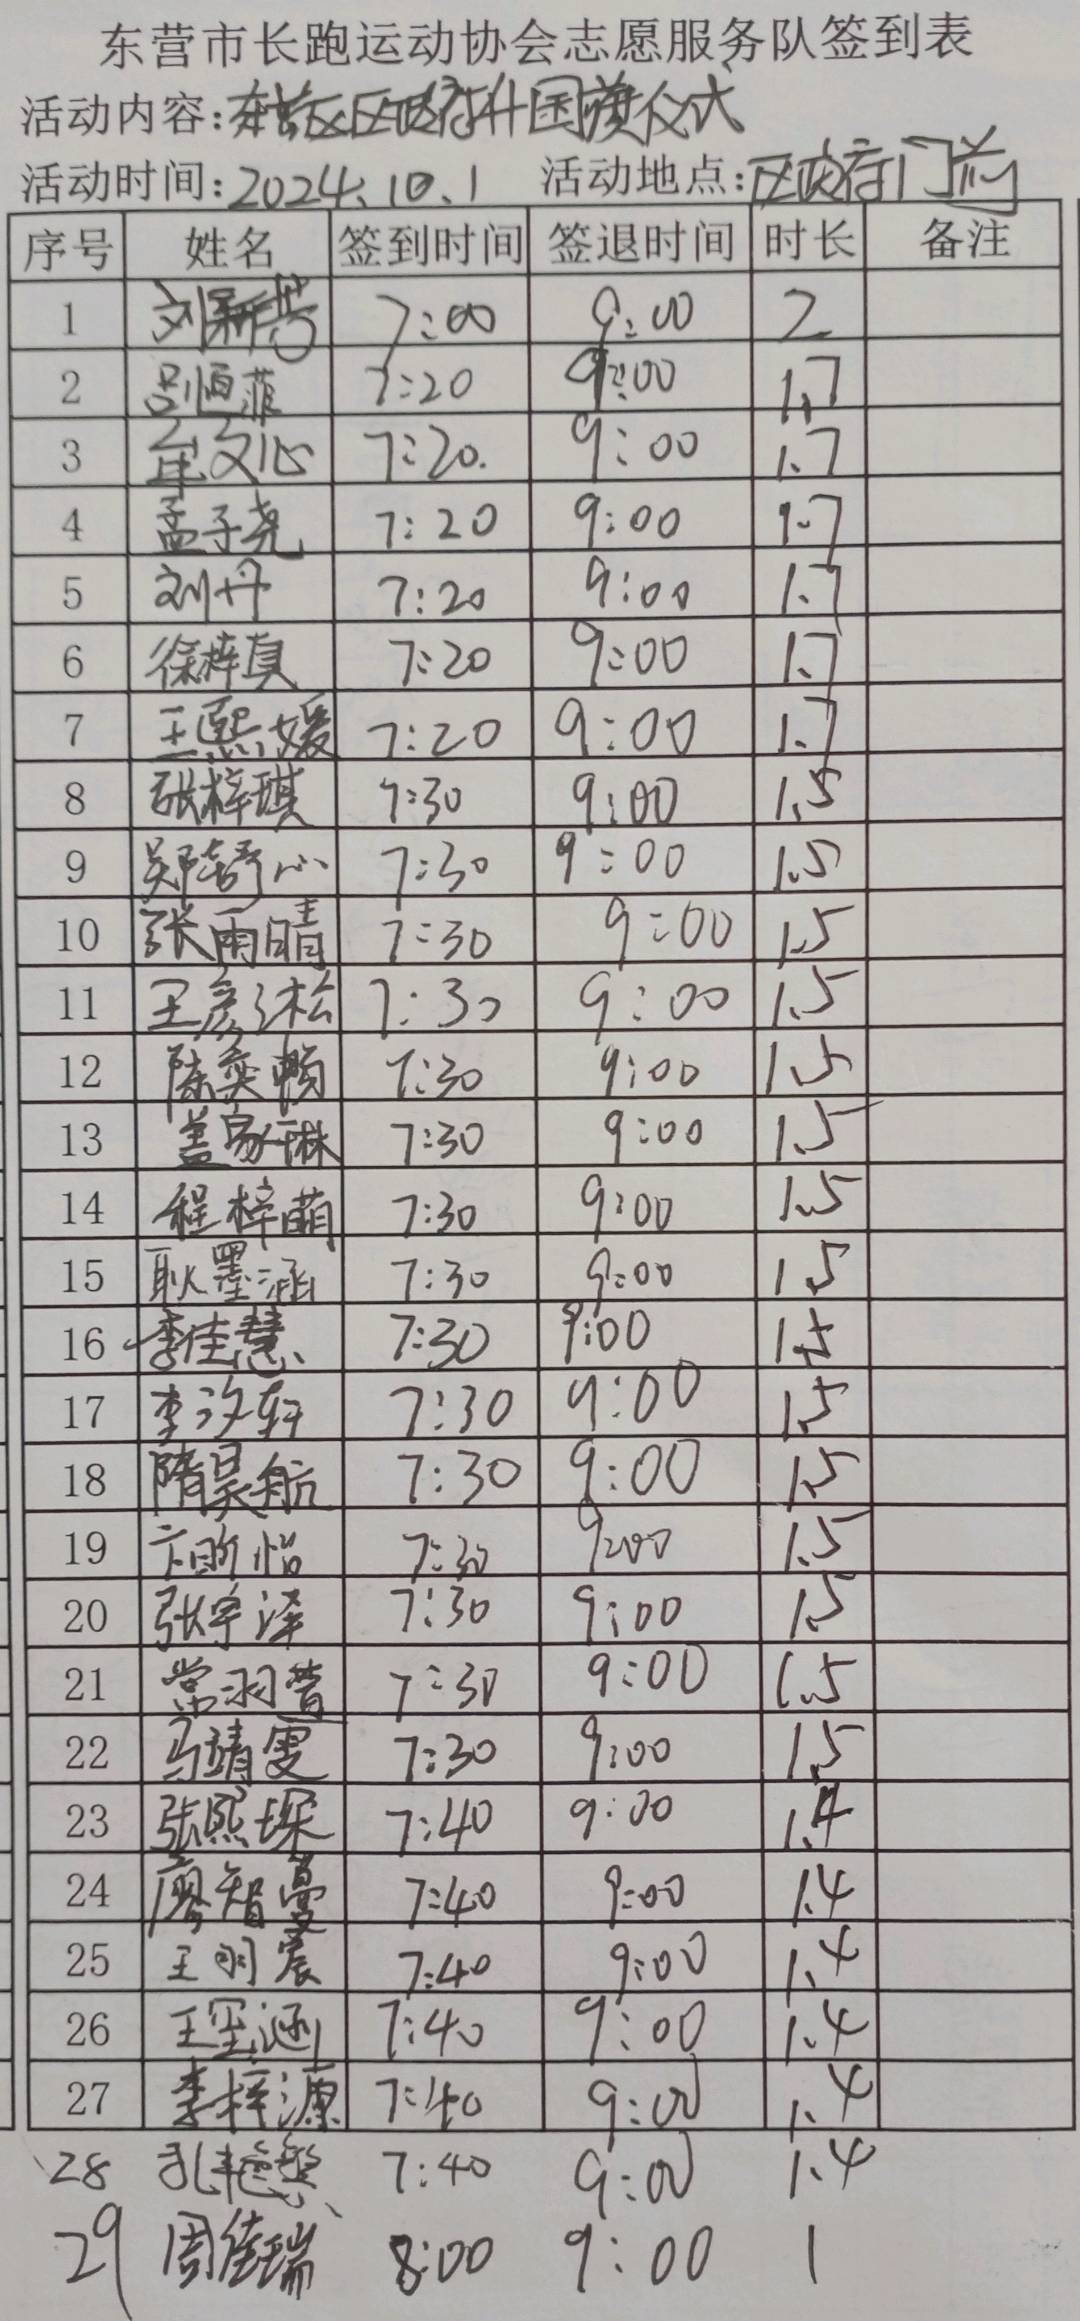 东营市长跑运动协会志愿服务队签到表
活动内容:东营区区政府升国旗仪式
活动时间:2024.10.1 活动地点:区政府门前
序号 姓名 签到时间 签退时间 时长 备注
1 刘新 7:00 9:00 2
2 吕恒菲 7:20 9:00 1.7
3 崔文心 7:20. 9:00 1.7
4 孟子尧 7:20 9:00 1.7
5 刘丹 7:20 9:00 1.7
6 徐梓真 7:20 9:00 1.7
7 王熙媛 7:20 9:00 1.7
8 张梓琪 7:30 9:00 1.5
9 郑琦心 7:30 9:00 1.5
10 张雨晴 7:30 9:00 1.5
11 王彦松 7:30 9:00 1.5
12 陈奕 7:30 9:00 1.5
13 盖家琳 7:30 9:00 1.5
14 程梓萌 7:30 9:00 1.5
15 耿墨涵 7:30 9:00 1.5
16 李佳慧 7:30 9:00 1.5
17 李汐轩 7:30 9:00 1.5
18 隋昊航 7:30 9:00 1.5
19 卞昕怡 7:30 9:00 1.5
20 张宇泽 7:30 9:00 1.5
21 常羽萱 7:30 9:00 1.5
22 马靖雯 7:30 9:00 1.5
23 张熙琛 7:40 9:00 1.4
24 廖智蔓 7:40 9:00 1.4
25 王羽宸 7:40 9:00 1.4
26 王涵 7:40 9:00 1.4
27 李梓源 7:40 9:00 1.4
28 孔 7:40 9:00 1.4
29 周佳瑞 8:00 9:00 1